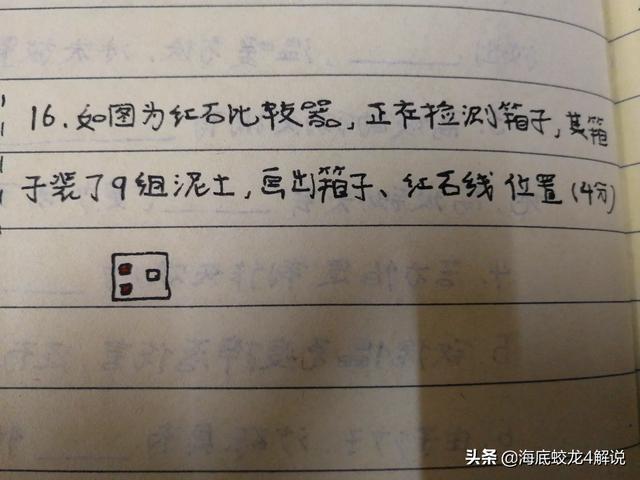 16.如图为红石比较器,正在检测箱子,其箱
子装了9组泥土,画出箱子、红石线位置(4分)
头条 @海底蛟龙4解说